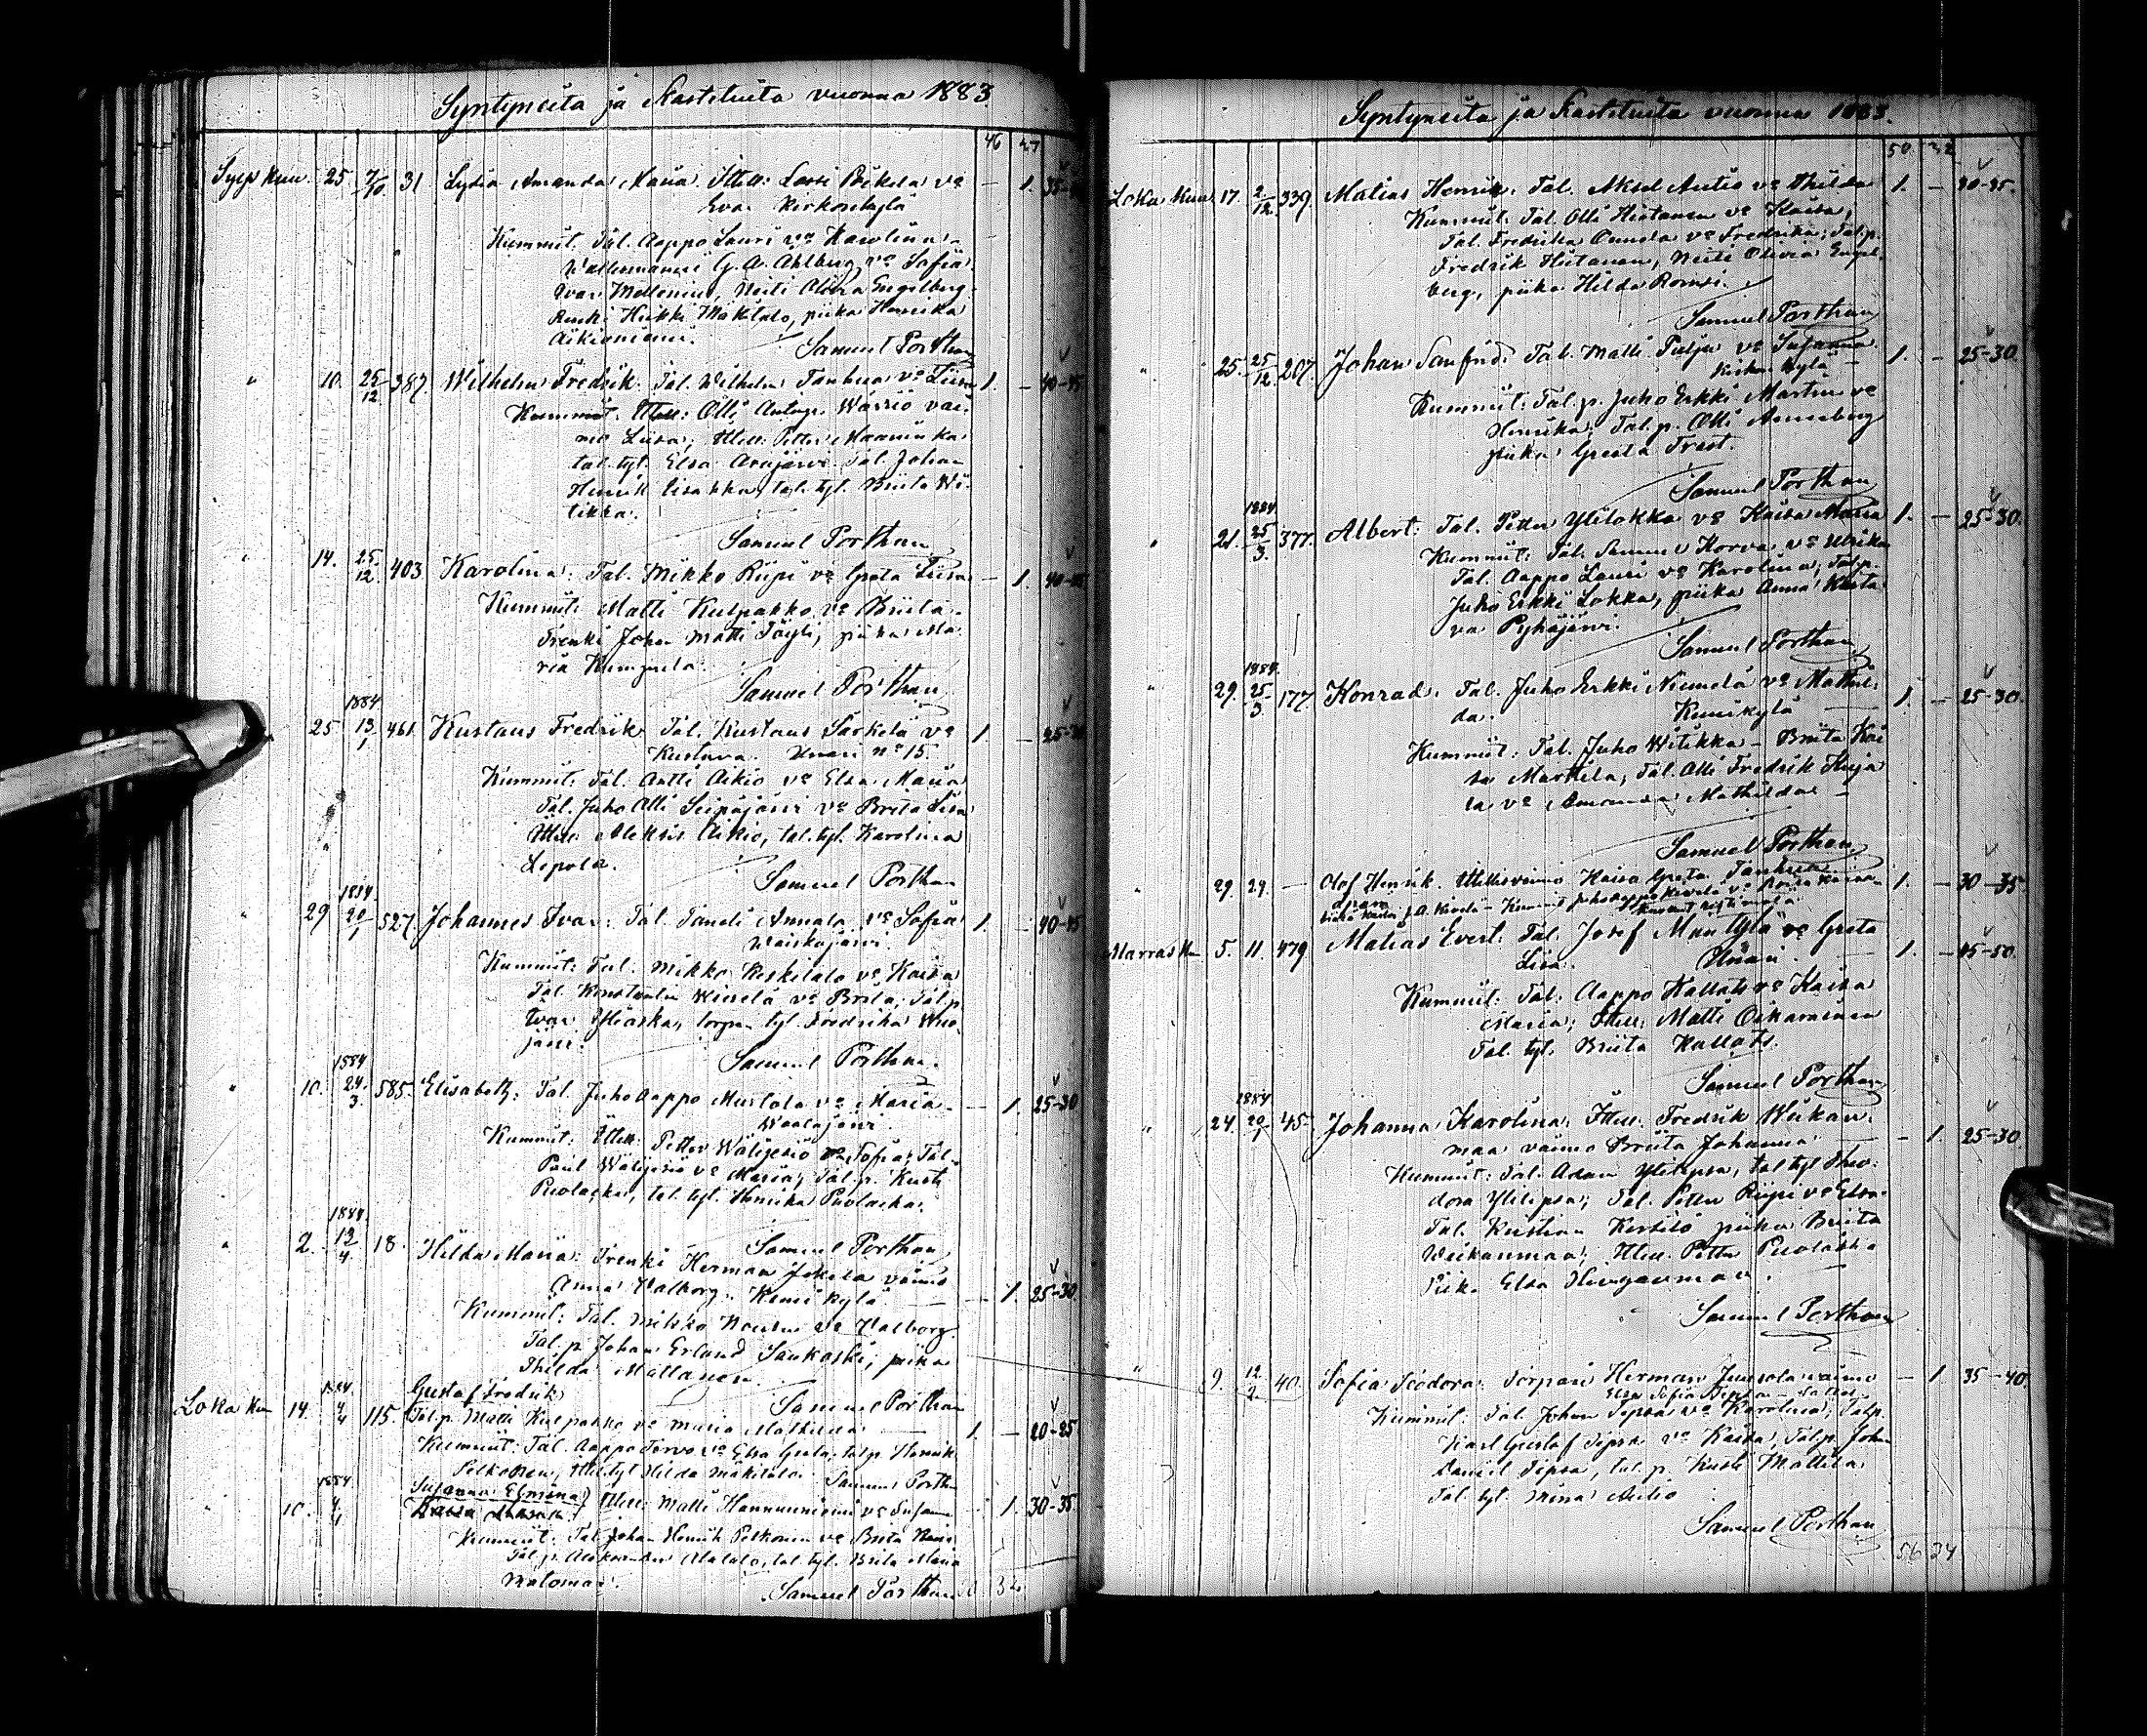 Syntyneitä ja Kastetuita vuonna 1883
46 27
Syys kuu. 25 7/10 31. Lydia Amanda Maria. Itsell: Lassi Pokela vo — 1. 35-
Eva Kirkonkylä
Kummit. Tal. Aappo Lauri vo Karolina
G. A. Ahlberg vo Sofia
Ivar Mellenius, Neiti Olivia Engelberg
Renki Heikki Mäkitalo, piika Henrika
Aikioniemi.
Samuel Porthan
" 10. 25/12 387. Wilhelm Fredrik. Tal. Wilhelm Tanhua vo Liisa 1. — 40-45
Kummit. Itsell: Olli Wärriö vai-
mo Liisa; Itsell: Petter Maaninka
tal. tyt. Elsa Arajärvi. Tal. Johan
Henrik tal. tyt. Briita Wi-
tikka.
Samuel Porthan
" 14. 25/12 403 Karolina: Tal. Mikko Riipi vo Greta Liisa — 1. 40-45
Kummit: Matti Kulpakko vo Briita
Trenki Johan Matti piika Ma-
ria
Samuel Porthan
1884
25 13/1 461. Kustaus Fredrik Tal. Kustaus Särkelä vo 1. — 25-30
Kustava. Unari no 15.
Kummit: Tal. Antti Aikio vo Elsa Maria
Tal. Juho Olli Seipäjärvi vo Brita Lisa
Itsell: Aleksis Aikio, tal. tyt. Karolina
Lepola.
Samuel Porthan
1884.
" 29 20/1 527. Johannes Ivar: Tal. Taneli Annala vo Sofia 1. — 40-45
Waiskojärvi.
Kummit: Tal. Mikko Keskitalo vo Kaisa
Tal. Konstantin vo Brita; Tal. p.
Ivar torpan tyt. Fredrika Wuo-
järvi.
Samuel Porthan.
1884
" 10. 24./3. 585. Elisabeth: Tal. Juho Aappo Mustola vo Maria — 1. 25-30
Waalajärvi.
Kummit: Itsell: Petter Wälijesiö vo Sofia; Tal.
Paul Wälijesiö vo Maria; Tal. p. Kusti
Puolakka, tal. tyt. Henrika Puolakka.
1884.
" 2. 12/4 18. Samuel Porthan
Hilda Maria: Trenki Herman Jokela vaimo
Anna Valborg. Kemikylä — 1. 25-30.
Kummit: Tal. Mikko vo Valborg.
Tal. p. Johan Erland Saukoski, piika
Thilda Mattanen.
1884. Gustaf Fredrik
Loka kuu 14. 4/4 115. Samuel Porthan
Tal. p. Matti Kulpakko vo Maria Mathilda 1. — 20-25
Kummit: Tal. Aappo Torvo vo Elsa Greta, tal. p. Henrik
Pelkonen, Itsell. tyt Hilda Mäkitalo. Samuel Porthan
1884 Susanna Elmina
" 10. Itsell: Matti Hannuniemi vo Susanna — 1. 30-35.
Kummit: Tal. Johan Henrik Pelkonen vo Brita
Tal. p. Aleksander Alatalo, tal. tyt. Brita Maria
Matomaa.
Samuel Porthan 50 32
Syntyneitä ja Kastetuita vuonna 1883.
50 32
Loka kuu 17. 2/12. 339. Matias Henrik: Tal. Aksel Autio vo Thilda 1. — 30-35.
Kummit: Tal. Olli Hietanen vo Kaisa,
Tal. Fredrik Onnela vo Fredrika; Tal. p.
Fredrik Hietanen, Neiti Olivia Engel-
berg, piika Hilda
Samuel Porthan
" 25. 25/12 207. Johan Sanfrid: Tal. Matti Pulju vo Susanna 1. — 25-30
Kirkon kylä
Kummit: Tal. p. Juho Erkki Martin vo
Henrika; Tal. p. Olli Arnesberg
piika Greeta Trast.
Samuel Porthan
1884.
" 21. 25/3. 377. Albert: Tal. Petter Ylilokka vo Kaisa Maria 1. — 25-30.
Kummit: Tal. Samuel Korva vo Ulrika
Tal. Aappo Lauri vo Karolina; Tal. p.
Juho Erkki Lokka, piika Anna Kusta-
va Pyhäjärvi.
Samuel Porthan
1884.
" 29. 25/3 177. Konrad. Tal. Juho Erkki Niemelä vo Mathil-
da. Kemikylä 1. — 25-30.
Kummit: Tal. Juho Witikka — Briita Kai-
sa Marttila; Tal. Olli Fredrik Kuja-
la vo Amanda Mathilda —
Samuel Porthan
" 29. 29. — Olof Henrik. Itsellisvaimo Kaisa Greta Tanhua 1. — 30-35
Marras ku 5. 11. 479 Matias Evert: Tal. Josef Mantylä vo Greta
Liisa. Unari. — 1. — 45-50.
Kummit: Tal: Aappo Kallatsvo Kaisa
Maria; Itsell: Matti Oikarainen
Tal. tyt. Briita Kallats.
Samuel Porthan
1884
" 24. 20/1 45. Johanna Karolina: Itsell. Fredrik Weikan-
maa vaimo Briita Johanna — — 1. 25-30
Kummit: Tal. Adam Ylilepsa, tal tyt Theo-
dora Ylilepsa; Tal. Petter Riipi vo Elsa
Tal. Kristian Kersilö piika Briita
Weikanmaa; Itsell. Petter Puolakka
Piika Elsa
Samuel Porthan
" 9. 12/2 40. Sofia Teodora: Torpari Herman Junsola vaimo — 1 35-40
Kummit: Tal. Johan Tepsa vo Karolina; Tal p.
Karl Gustaf Tepsa vo Kaisa, Tal p. Johan
Daniel Tepsa, tal. p. Kusti Mattila
Tal. tyt. Mina Autio
Samuel Porthan
56 34